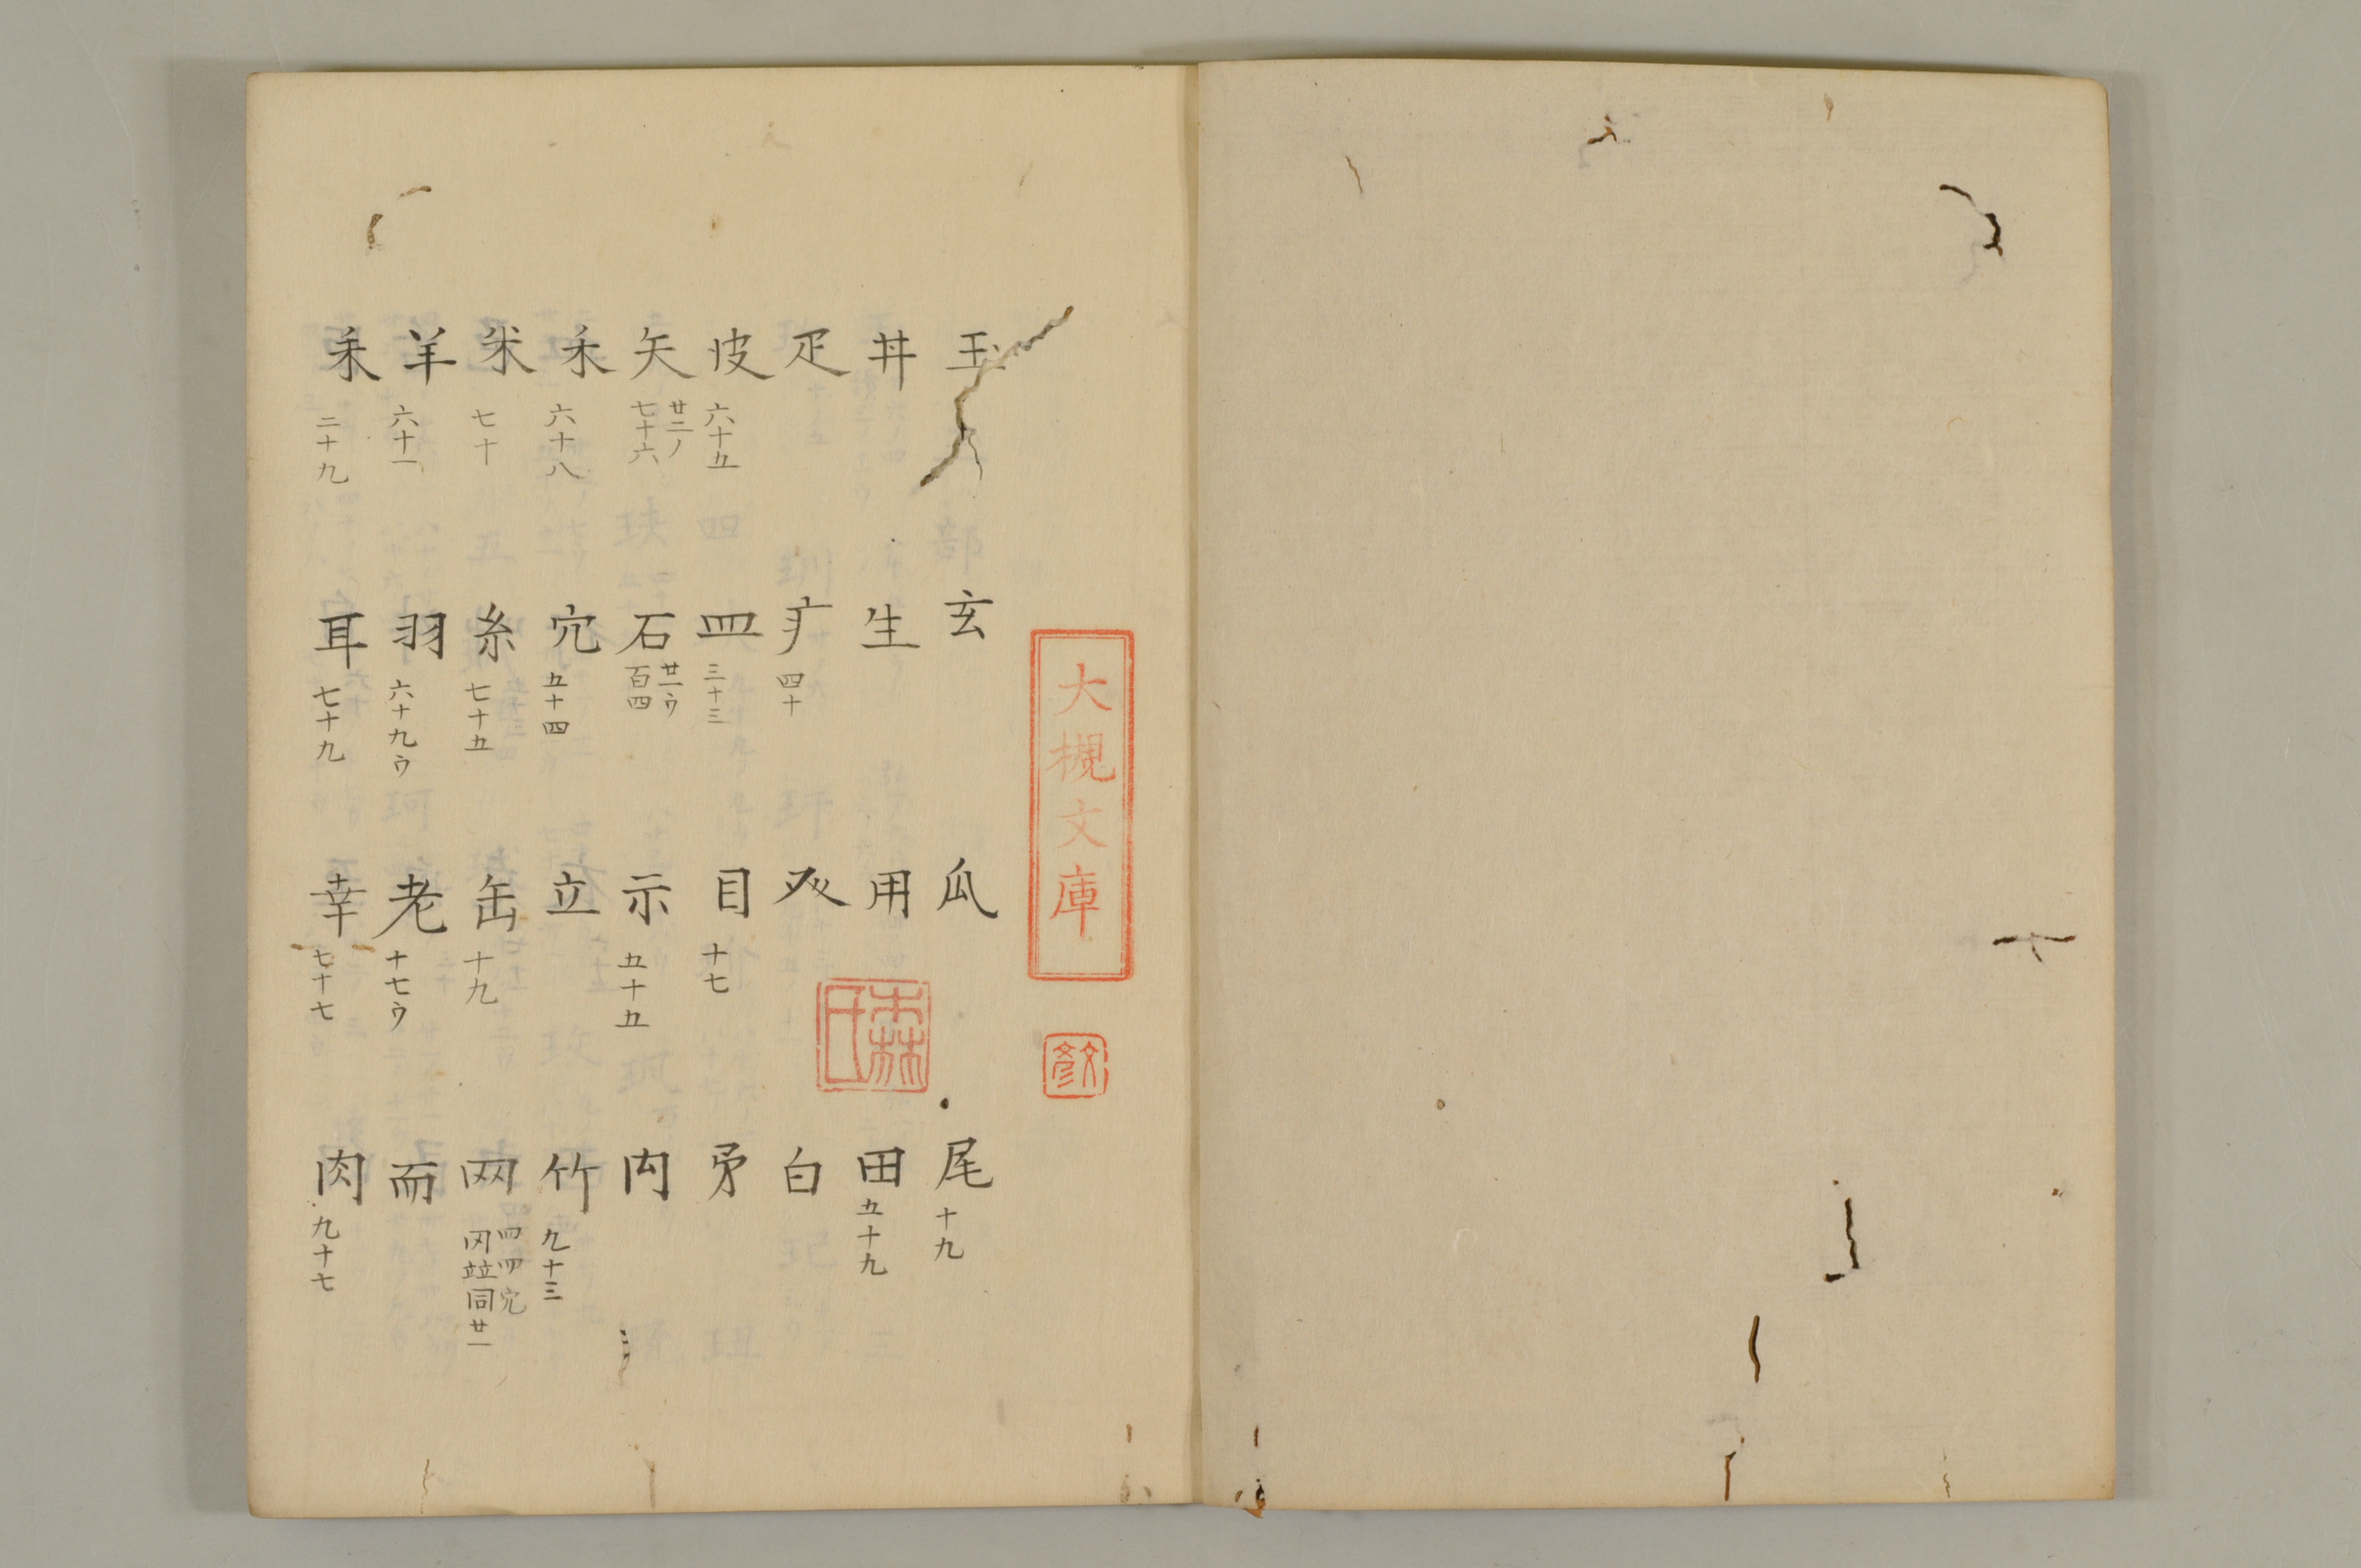 大槻文庫
玉 玄 瓜 尾 十九
井 生 用 田 五十九
疋 疒 四十 癶 白
皮 六十五 皿 三十三 目 十七 矛
矢 廿二ノ 七十六 石 廿一ウ 百四 示 五十五 禸
禾 六十八 穴 五十四 立 竹 九十三
米 七十 糸 七十五 缶 十九 网 罒 㓁 冈 並同 廿一
羊 六十一 羽 六十九ウ 老 十七ウ 而
耒 二十九 耳 七十九 幸 七十七 肉 九十七
森氏